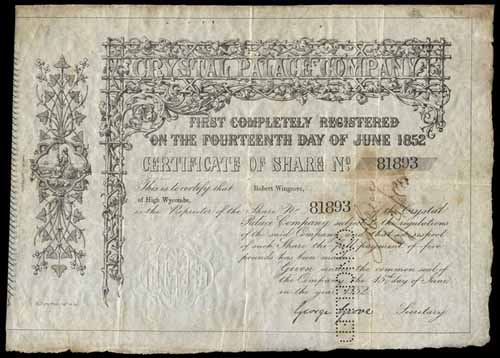 CRYSTAL PALACE COMPANY
FIRST COMPLETELY REGISTERED
ON THE FOURTEENTH DAY OF JUNE 1852
CERTIFICATE OF SHARE No. 81893
This is to certify that Robert Wingrove,
of High Wycombe,
is the Proprietor of the Share No. 81893 of the Crystal
Palace Company subject to the regulations
of the said Company and that in respect
of such Share the full payment of five
pounds has been made
Given under the common seal of
the Company the 15th day of June
in the year 1852
George Grove Secretary